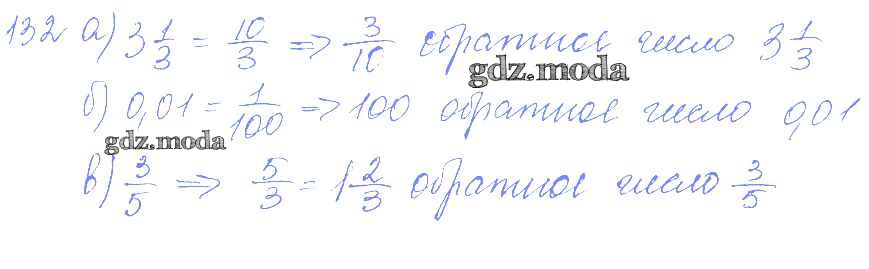 132 а) 3 1/3 = 10/3 => 3/10 обратное число 3 1/3
gdz.moda
б) 0,01 = 1/100 => 100 обратное число 0,01
gdz.moda
в) 3/5 => 5/3 = 1 2/3 обратное число 3/5